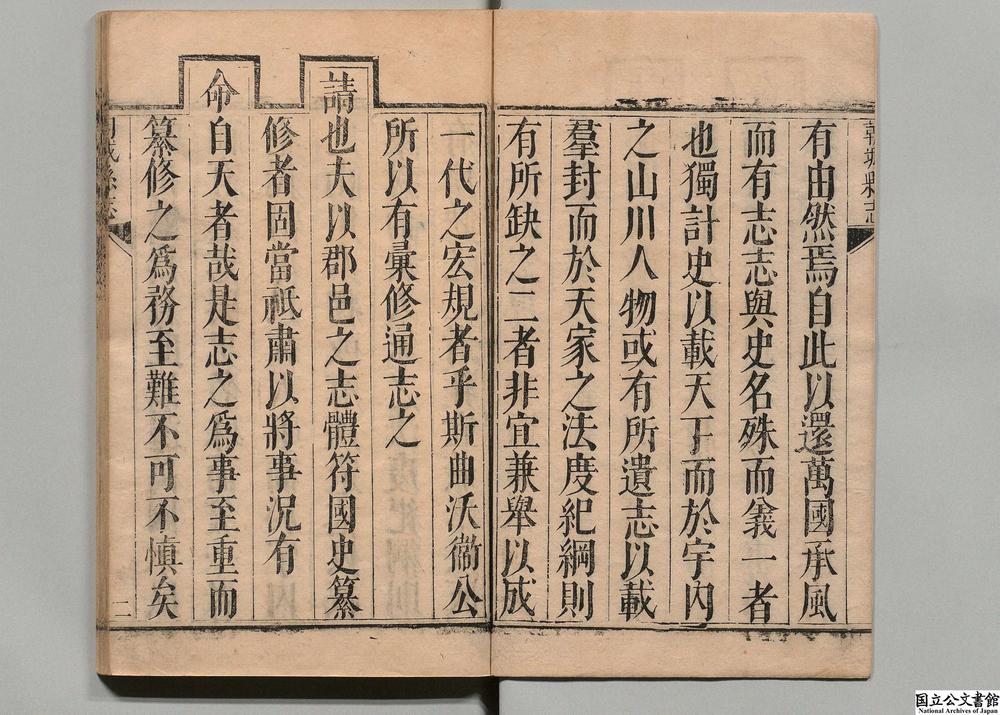 朝城縣志
有由然焉自此以還萬國承風
而有志志與史名殊而義一者
也獨計史以載天下而於宇內
之山川人物或有所遺志以載
羣封而於天家之法度紀綱則
有所缺之二者非宜兼舉以成
一代之宏規者乎斯曲沃衞公
所以有彙修通志之
請也夫以郡邑之志體符國史纂
修者固當祗肅以將事況有
命自天者哉是志之爲事至重而
纂修之爲務至難不可不慎矣
二
国立公文書館
National Archives of Japan